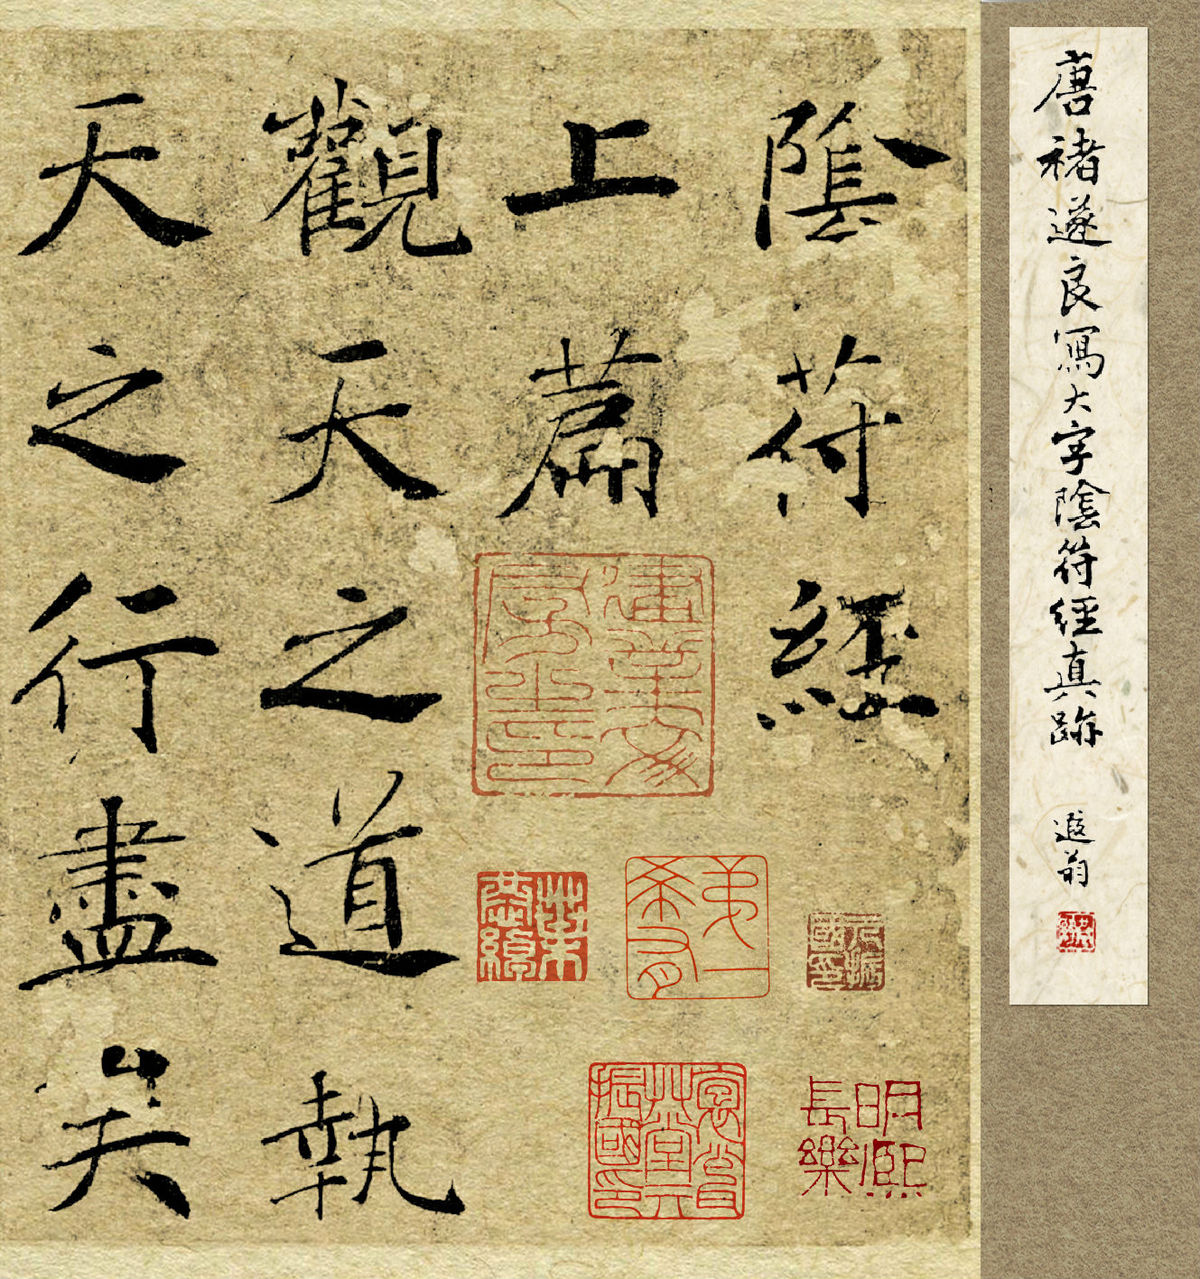 唐褚遂良寫大字陰符經真跡
遐翁
陰符經
上篇
觀天之道執
天之行盡矣
建業文房之印
明熙長樂